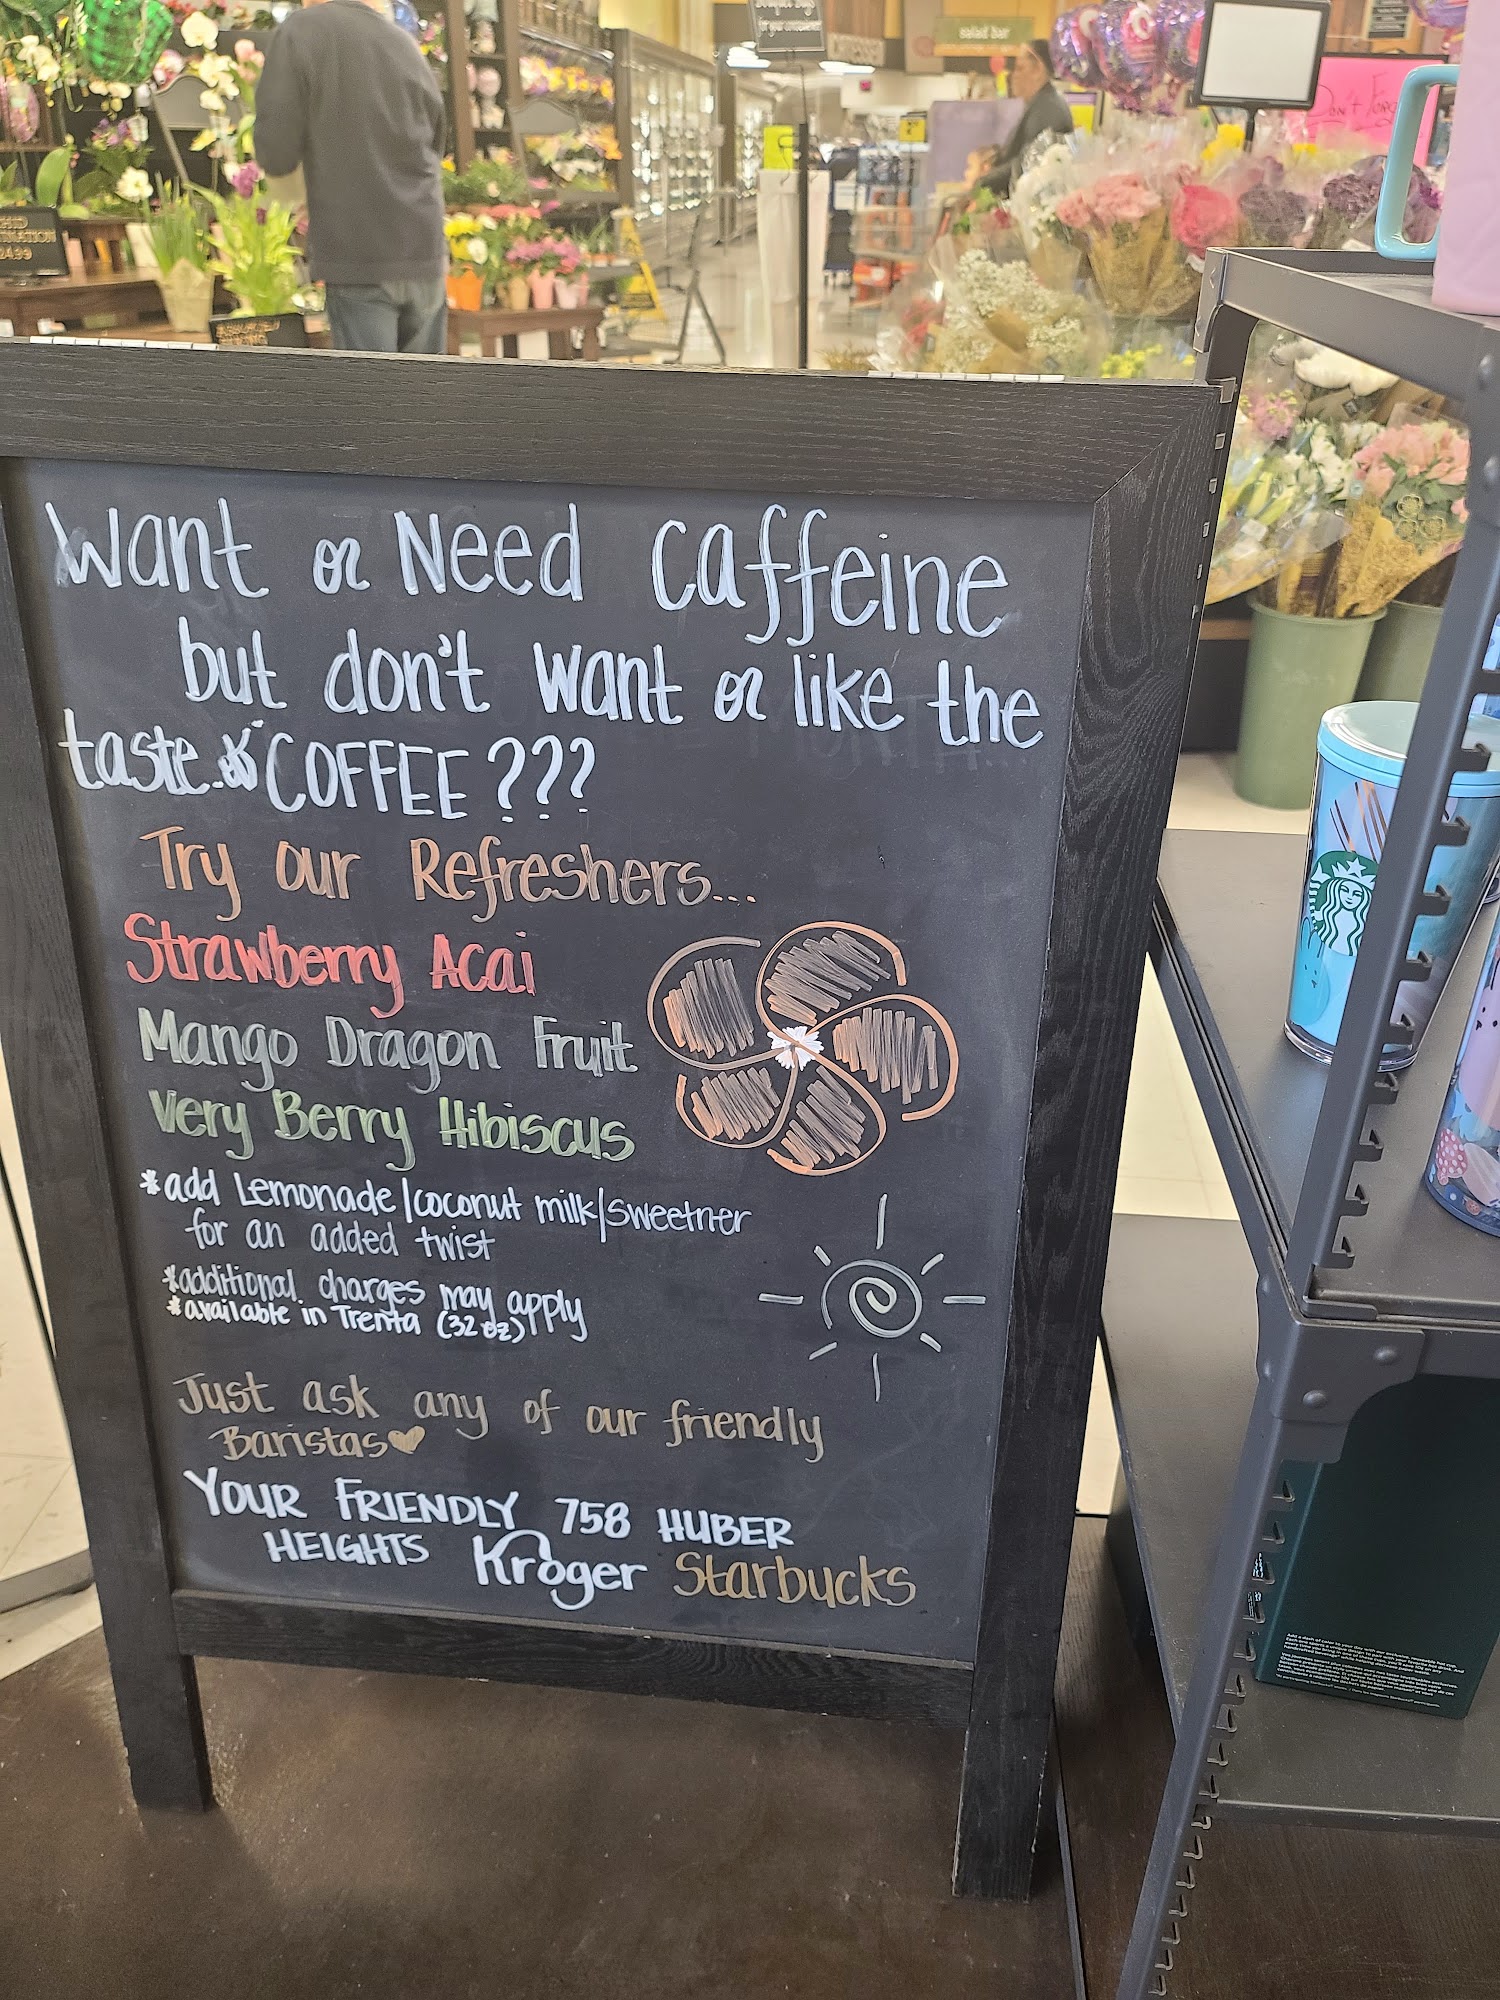 salad bar
Don't Forg
Want or Need Caffeine
but don't want or like the
taste of COFFEE???
Try our Refreshers...
Strawberry Acai
Mango Dragon Fruit
Very Berry Hibiscus
*add Lemonade/coconut milk/sweetner
for an added twist
*additional charges may apply
*available in Trenta (32 oz)
Just ask any of our friendly
Baristas
YOUR FRIENDLY 758 HUBER
HEIGHTS Kroger Starbucks